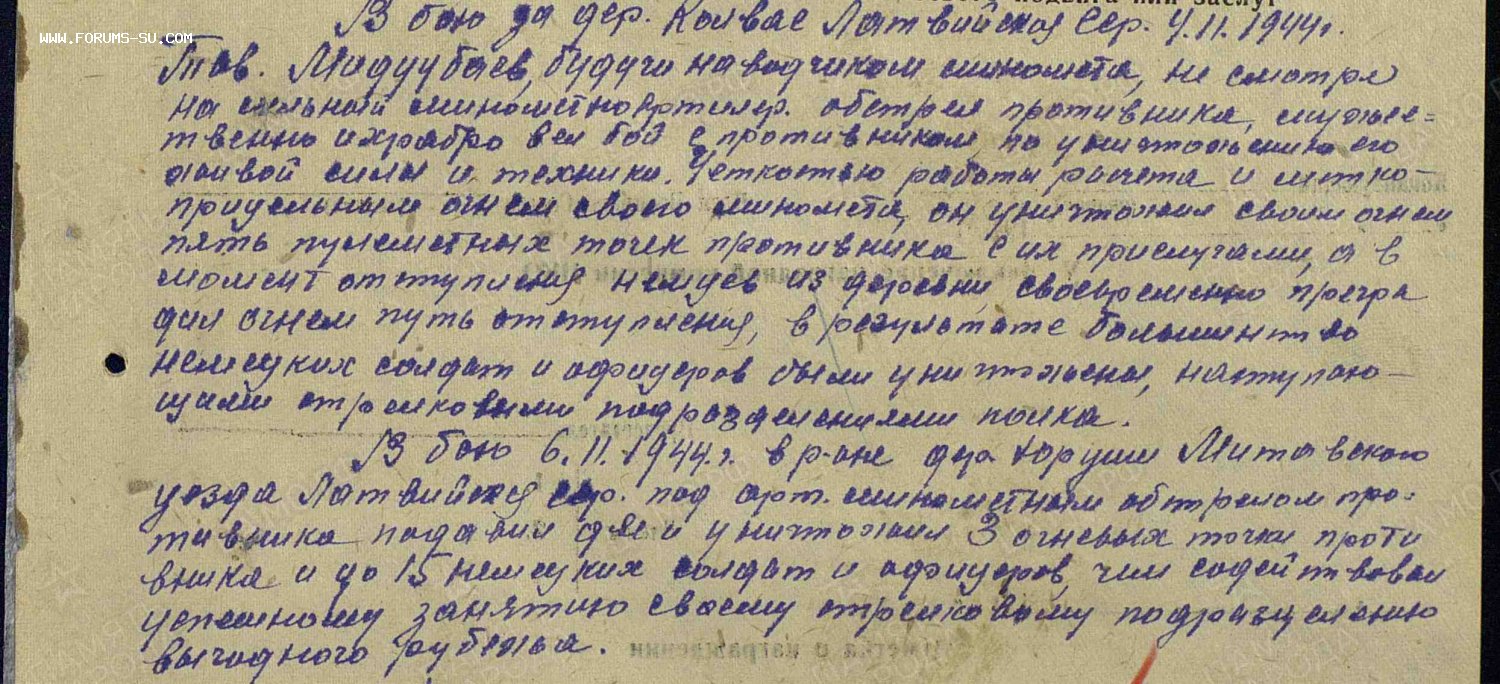 подвига или заслуг
В бою за дер. Колвас Латвийская ССР. 4.11.1944г.
www.forums-su.com
Тов. Мадуубаев, будучи наводчиком миномета, не смотря
на сильный минометно артилер. обстрел противника, мужес=
твенно и храбро вел бой с противником по уничтожению его
живой силы и техники. Четкостью работы расчета и метко-
прицельным огнем своего миномета, он уничтожил своим огнем
пять пулеметных точек противника с их прислугами, а в
момент отступления немцев из деревни, своевременно прегра
дил огнем путь отступления, в результате большинство
немецких солдат и офицеров были уничтожены, наступаю-
щими стрелковыми подразделениями полка.
В бою 6.11.1944.г. в р-оне дер Хоруши Митавского
уезда Латвийская ССР. под арт. минометным обстрелом про-
тивника подавил две и уничтожил 3 огневых точки проти
вника и до 15 немецких солдат и офицеров, чем содействовал
успешному занятию своему стрелковому подразделению
выгодного рубежа.